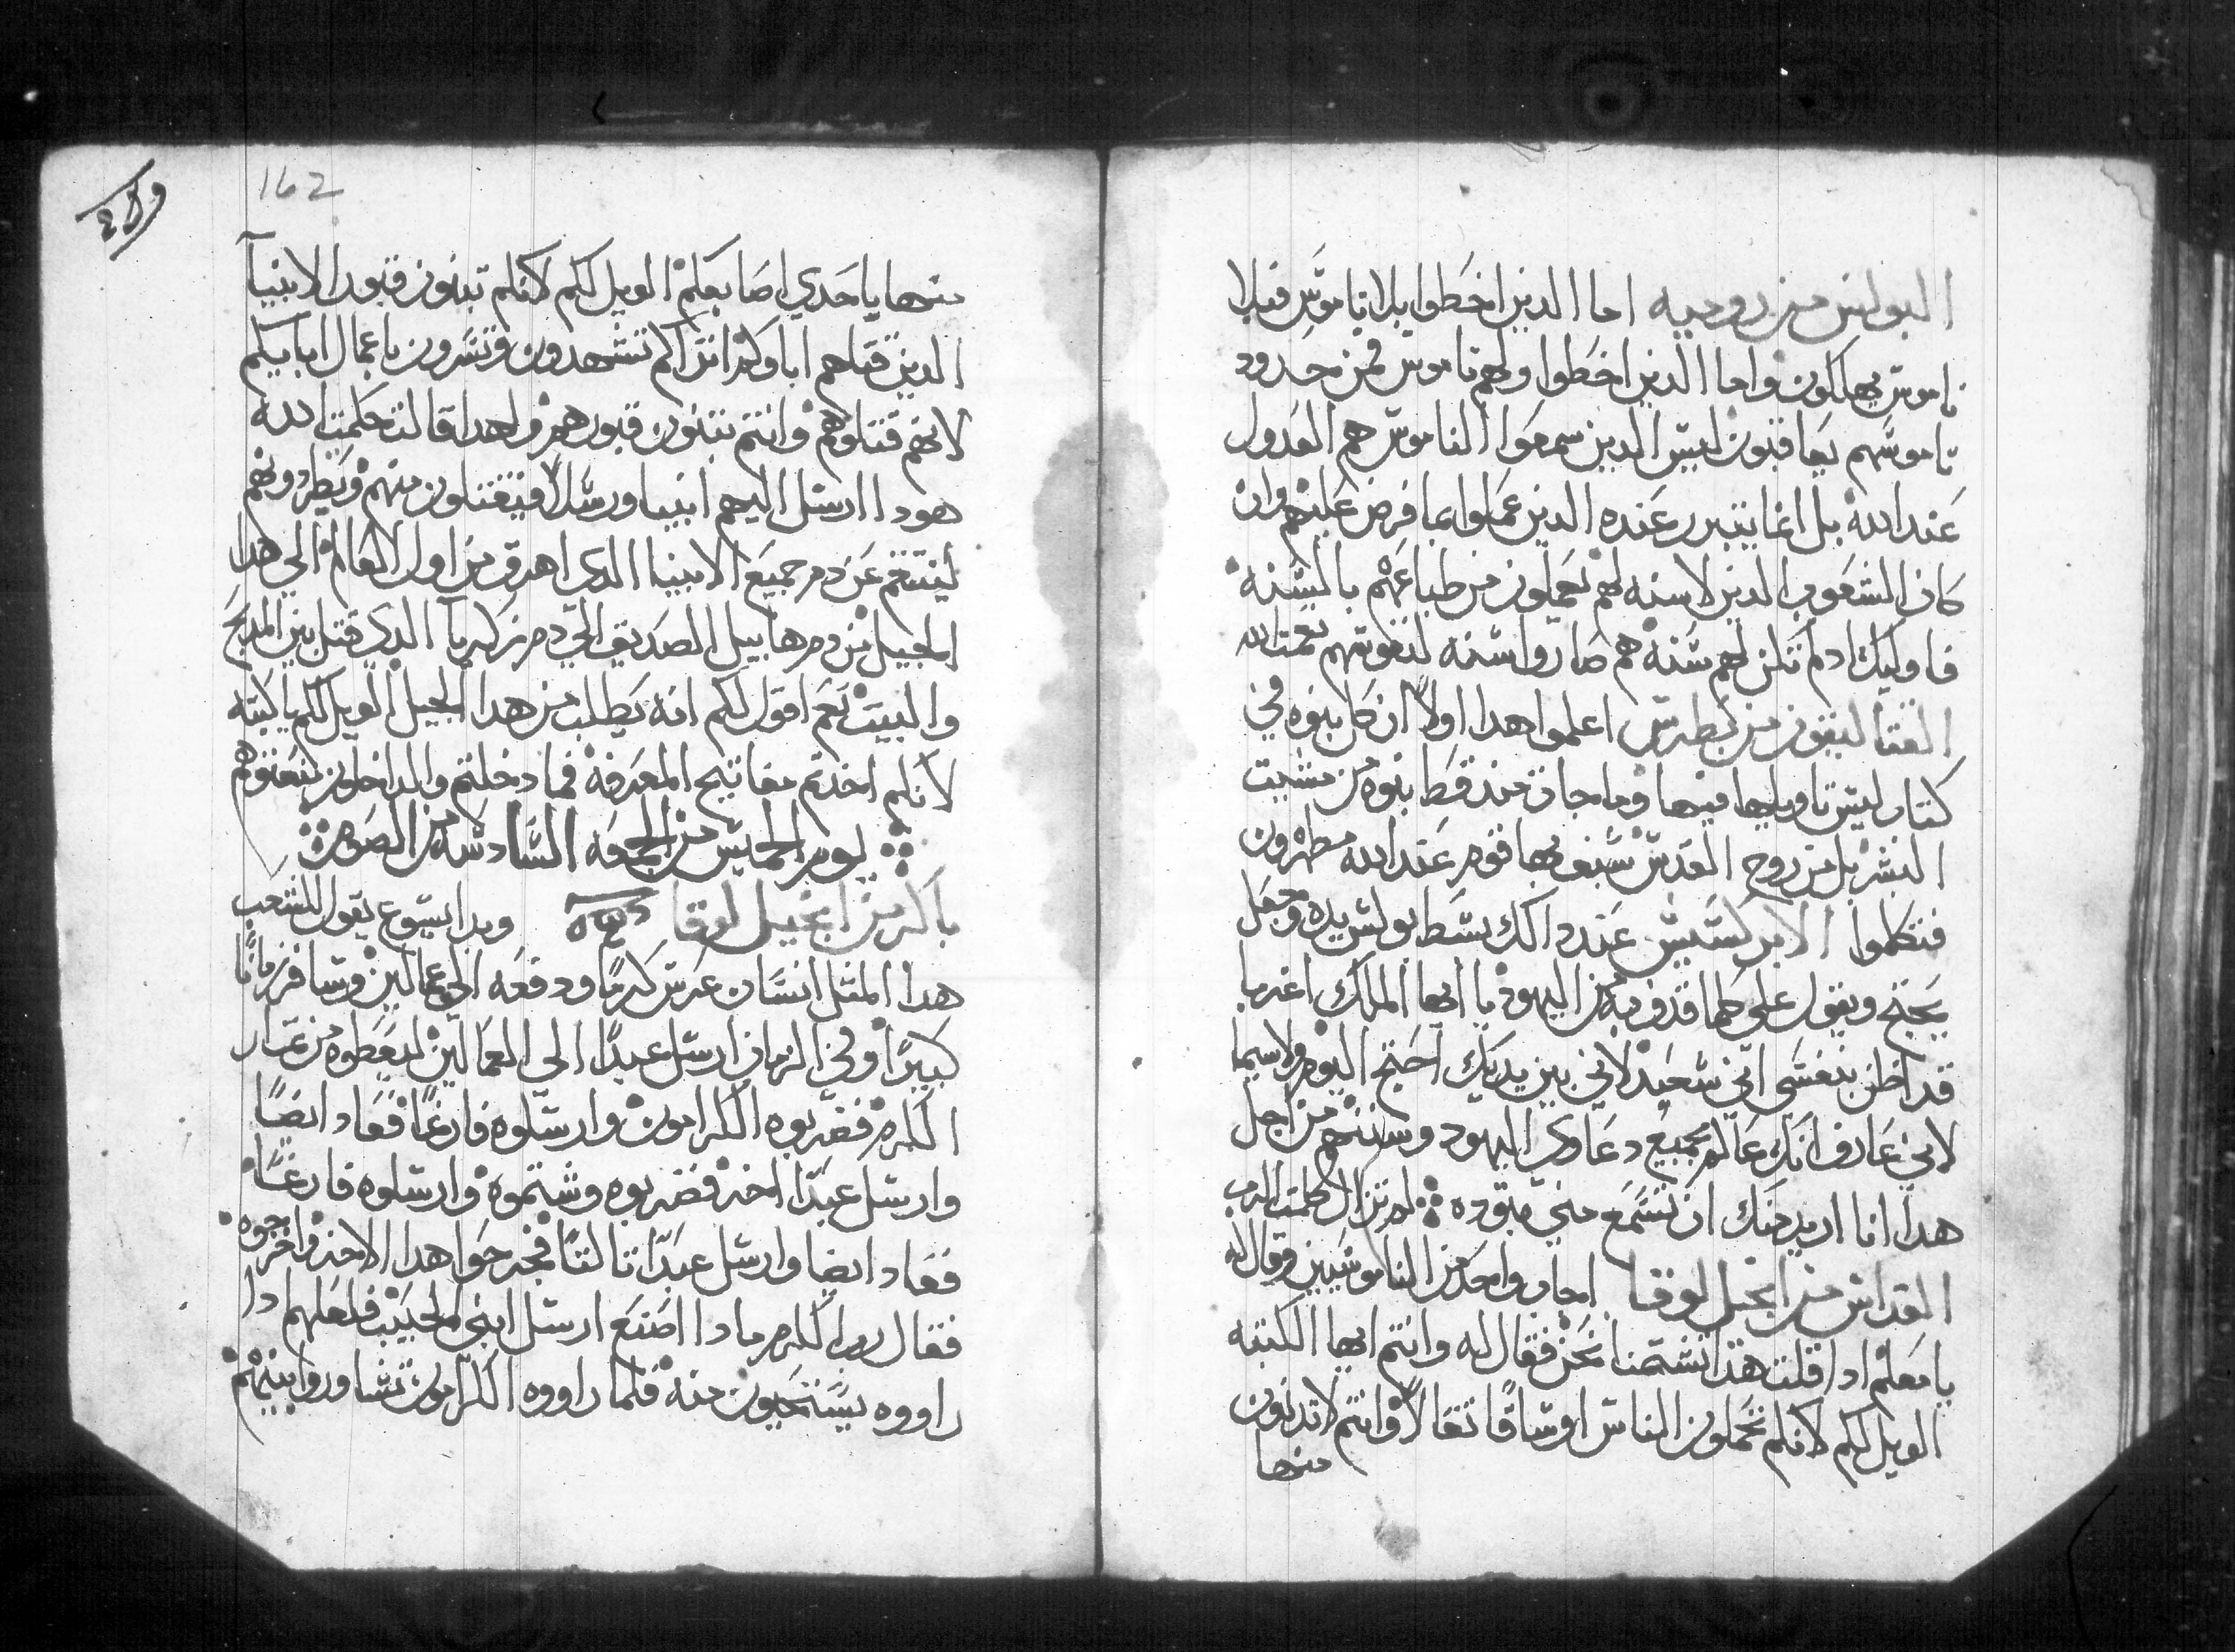 البولس من روميه اما الدين اخطوا بلا ناموس فبلا
ناموس يهلكون واما الدين اخطوا ولهم ناموس فمن حدود
ناموسهم يعاقبون ليس الدين سمعوا الناموس هم العدول
عند الله بل انما يتبرر عنده الدين عملوا بما فرض عليهم وان
كان الشعوب الدين لا سنه لهم يعملون من طباعهم بالسنه
فاوليك ادلم تكن لهم سنه هم صاروا سنه لنفوسهم نعمت الله
القتاليقون من بطرس اعلموا هدا اولا ان كل نبوه في
كتاب ليس تاويلها فيها وما جات مند قط نبوه من مشيت
البشر بل من روح القدس سبق بها قوم عند الله مطهرون
فتكلموا الابركسيس عند دالك بسط بولس يده وجعل
يحتج ويقول على كلما قدفت به من اليهود يا ايها الملك اغربا
قد اظن بنفسى انى سعيد لاني بين يديك احتج اليوم ولاسيما
لاني عارف انك عالم بجميع دعاوي اليهود وسننهم من اجل
هدا انا اريد منك ان تسمع مني بتوده لم تزال كلمت الرب
القداس من انجيل لوقا اجاب واحد من الناموسيين وقال له
يا معلم ادا قلت هدا تشتمنا نحن فقال له وانتم ايها الكتبه
الويل لكم لانكم تحملون الناس اوساقا تقالا وانتم لا تدنون
منها
162
منها باحدي اصابعكم الويل لكم لانكم تبنون قبور الانبيآ
الدين قتلهم اباوكم انراكم تشهدون وتسرون باعمال ابايكم
لانهم قتلوهم وانتم تبنون قبورهم ولهدا قالت حكمت الله
هودا ارسل اليهم انبيا ورسلا فيقتلون منهم ويطردونهم
لينتقم عن دم جميع الانبيا الدى اهرق من اول العالم الي هدا
الجيل من دم هابيل الصديق الي دم زكريآ الدي قتل بين المدبح
والبيت نعم اقول لكم انه يطلب من هدا الجيل الويل لكم يا كتبه
لانكم اخدتم مفاتيح المعرفه فما دخلتم والداخلون منعتوهم
يوم الخميس من الجمعه السادسه من الصوم
باكر من انجيل لوقا وبدا يسوع يقول للشعب
هدا المثل انسان غرس كرما ودفعه الي عمالين وسافر زمانا
كبيرا وفي الزمان ارسل عبدا الي العمالين ليعطوه من تمار
الكرم فضربوه الكرامون وارسلوه فارغا فعاد ايضا
وارسل عبدا اخر فضربوه وشتموه وارسلوه فارغا
فعاد ايضا وارسل عبدا تالتا فجرحوا هدا الاخر واخرجوه
فقال رب الكرم مادا اصنع ارسل ابني الحبيب فلعلهم ادا
راووه يستحيون منه فلما راووه الكرامون تشاوروا بينهم